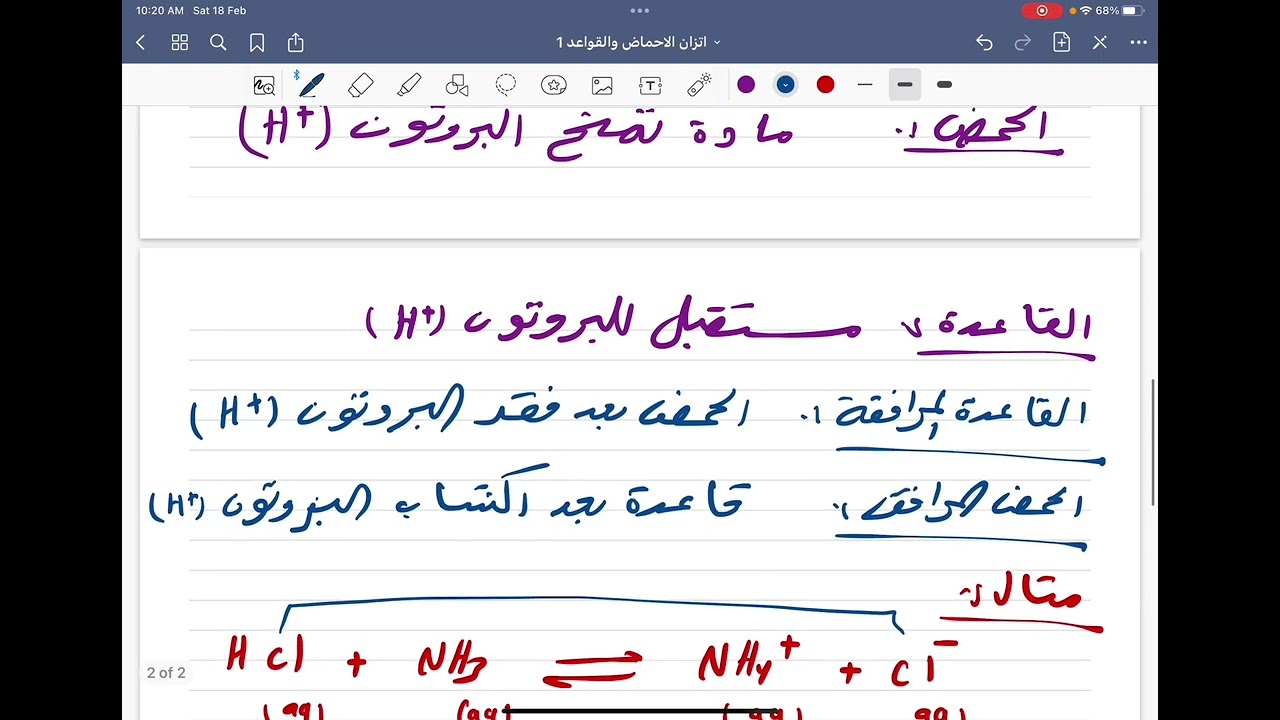 10:20 AM Sat 18 Feb
68%
اتزان الاحماض والقواعد 1
الحمض :. مادة تمنح البروتون (H+)
القاعدة : مستقبل للبروتون (H+)
القاعدة المرافقة :. الحمض بعد فقد البروتون (H+)
الحمض المرافق :. قاعدة بعد اكتساب البروتون (H+)
مثال :.
HCl + NH3 ⇌ NH4+ + Cl-
(aq) (aq) (aq) aq
2 of 2